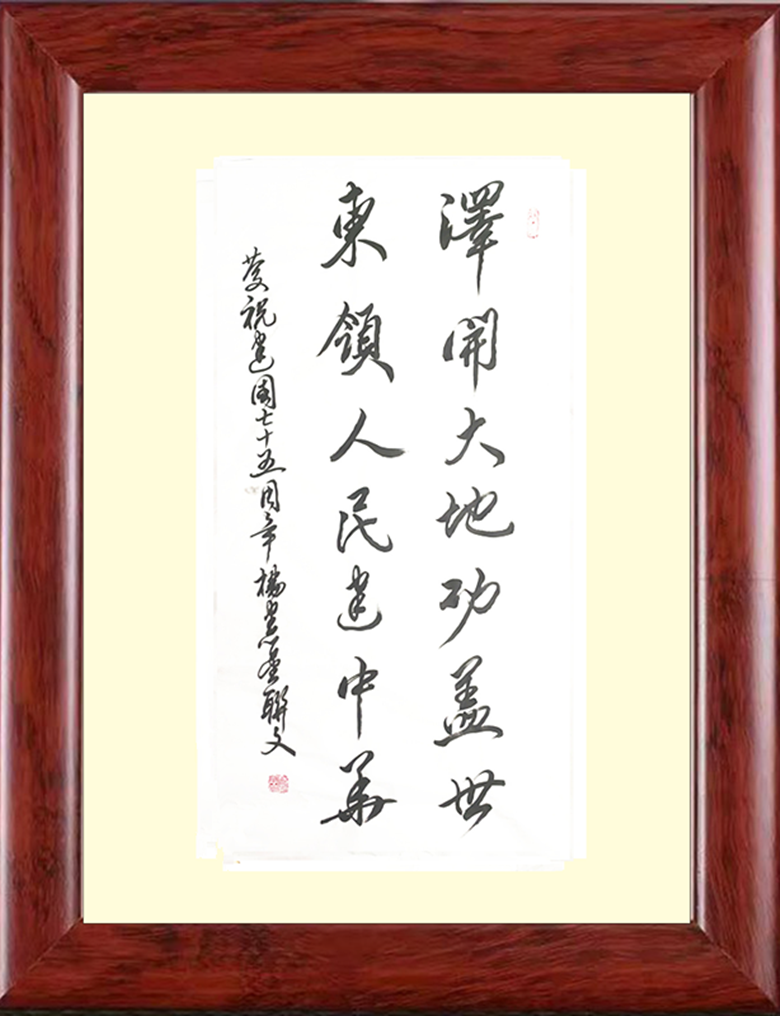 澤開大地功盖世
東領人民建中華
慶祝建国七十五周年楊

聯文